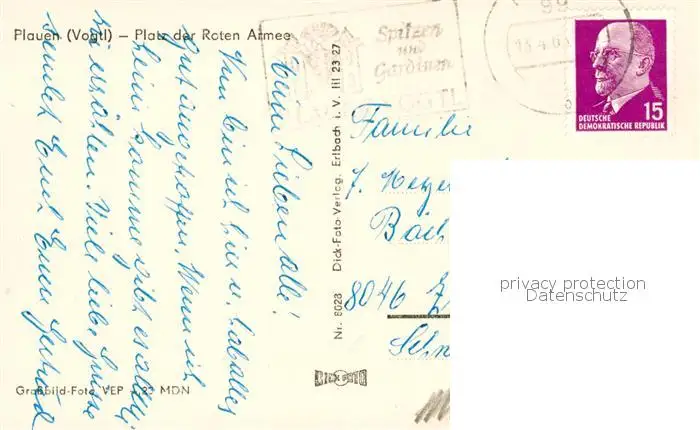 Plauen (Vogtl) — Platz der Roten Armee
Spitzen
und
Gardinen
99
DEUTSCHE
DEMOKRATISCHE REPUBLIK
15
Meine Lieben alle!
Nun bin ich hier u. hab alles
gut angetroffen. Wenn ich
heim komme gibt es allerlei
zu erzählen. Viele liebe Grüsse
sendet Euch Eure Gertrud
Nr. 8023 Dick-Foto-Verlag, Erlbach i. V. III 23 27
Familie
J.
8046
privacy protection
Datenschutz
DICK FOTO
Großbild-Foto VEP 0,23 MDN